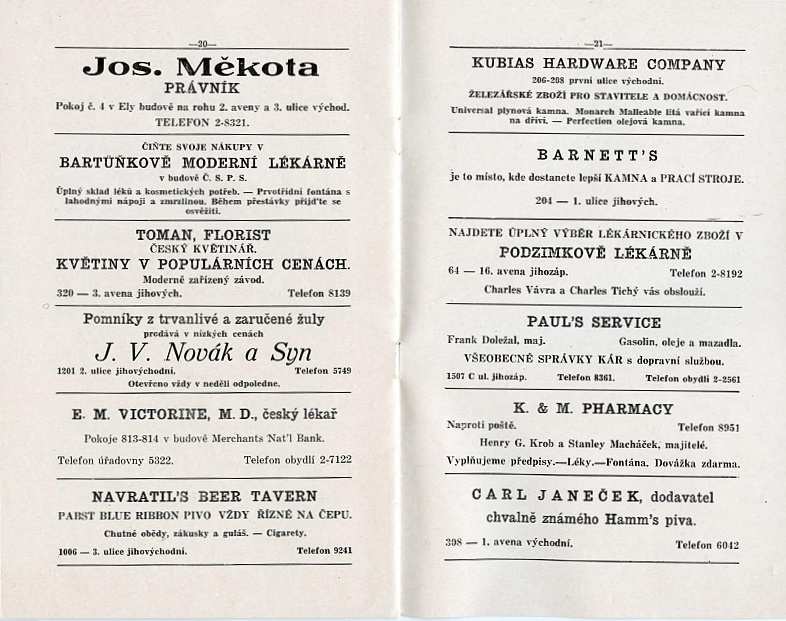 —20—
Jos. Měkota
PRÁVNÍK
Pokoj č. 4 v Ely budově na rohu 2. aveny a 3. ulice východ.
TELEFON 2-8321.
ČIŇTE SVOJE NÁKUPY V
BARTŮŇKOVĚ MODERNÍ LÉKÁRNĚ
v budově Č. S. P. S.
Úplný sklad léků a kosmetických potřeb. — Prvotřídní fontána s
lahodnými nápoji a zmrzlinou. Během přestávky přijďte se
osvěžiti.
TOMAN, FLORIST
ČESKÝ KVĚTINÁŘ.
KVĚTINY V POPULÁRNÍCH CENÁCH.
Moderně zařízený závod.
320 — 3. avena jihových. Telefon 8139
Pomníky z trvanlivé a zaručené žuly
prodává v nízkých cenách
J. V. Novák a Syn
1201 2. ulice jihovýchodní. Telefon 5749
Otevřeno vždy v neděli odpoledne.
E. M. VICTORINE, M. D., český lékař
Pokoje 813-814 v budově Merchants Nat'l Bank.
Telefon úřadovny 5322. Telefon obydlí 2-7122
NAVRATIL'S BEER TAVERN
PABST BLUE RIBBON PIVO VŽDY ŘÍZNÉ NA ČEPU.
Chutné obědy, zákusky a guláš. — Cigarety.
1006 — 3. ulice jihovýchodní. Telefon 9241
—21—
KUBIAS HARDWARE COMPANY
206-208 první ulice východní.
ŽELEZÁŘSKÉ ZBOŽÍ PRO STAVITELE A DOMÁCNOST.
Universal plynová kamna. Monarch Malleable litá vařící kamna
na dříví. — Perfection olejová kamna.
BARNETT'S
je to místo, kde dostanete lepší KAMNA a PRACÍ STROJE.
204 — 1. ulice jihových.
NAJDETE ÚPLNÝ VÝBĚR LÉKÁRNICKÉHO ZBOŽÍ V
PODZIMKOVĚ LÉKÁRNĚ
64 — 16. avena jihozáp. Telefon 2-8192
Charles Vávra a Charles Tichý vás obslouží.
PAUL'S SERVICE
Frank Doležal, maj. Gasolin, oleje a mazadla.
VŠEOBECNÉ SPRÁVKY KÁR s dopravní službou.
1507 C ul. jihozáp. Telefon 8361. Telefon obydlí 2-2561
K. & M. PHARMACY
Naproti poště. Telefon 8951
Henry G. Krob a Stanley Macháček, majitelé.
Vyplňujeme předpisy.—Léky.—Fontána. Dovážka zdarma.
CARL JANEČEK, dodavatel
chvalně známého Hamm's piva.
308 — 1. avena východní. Telefon 6042